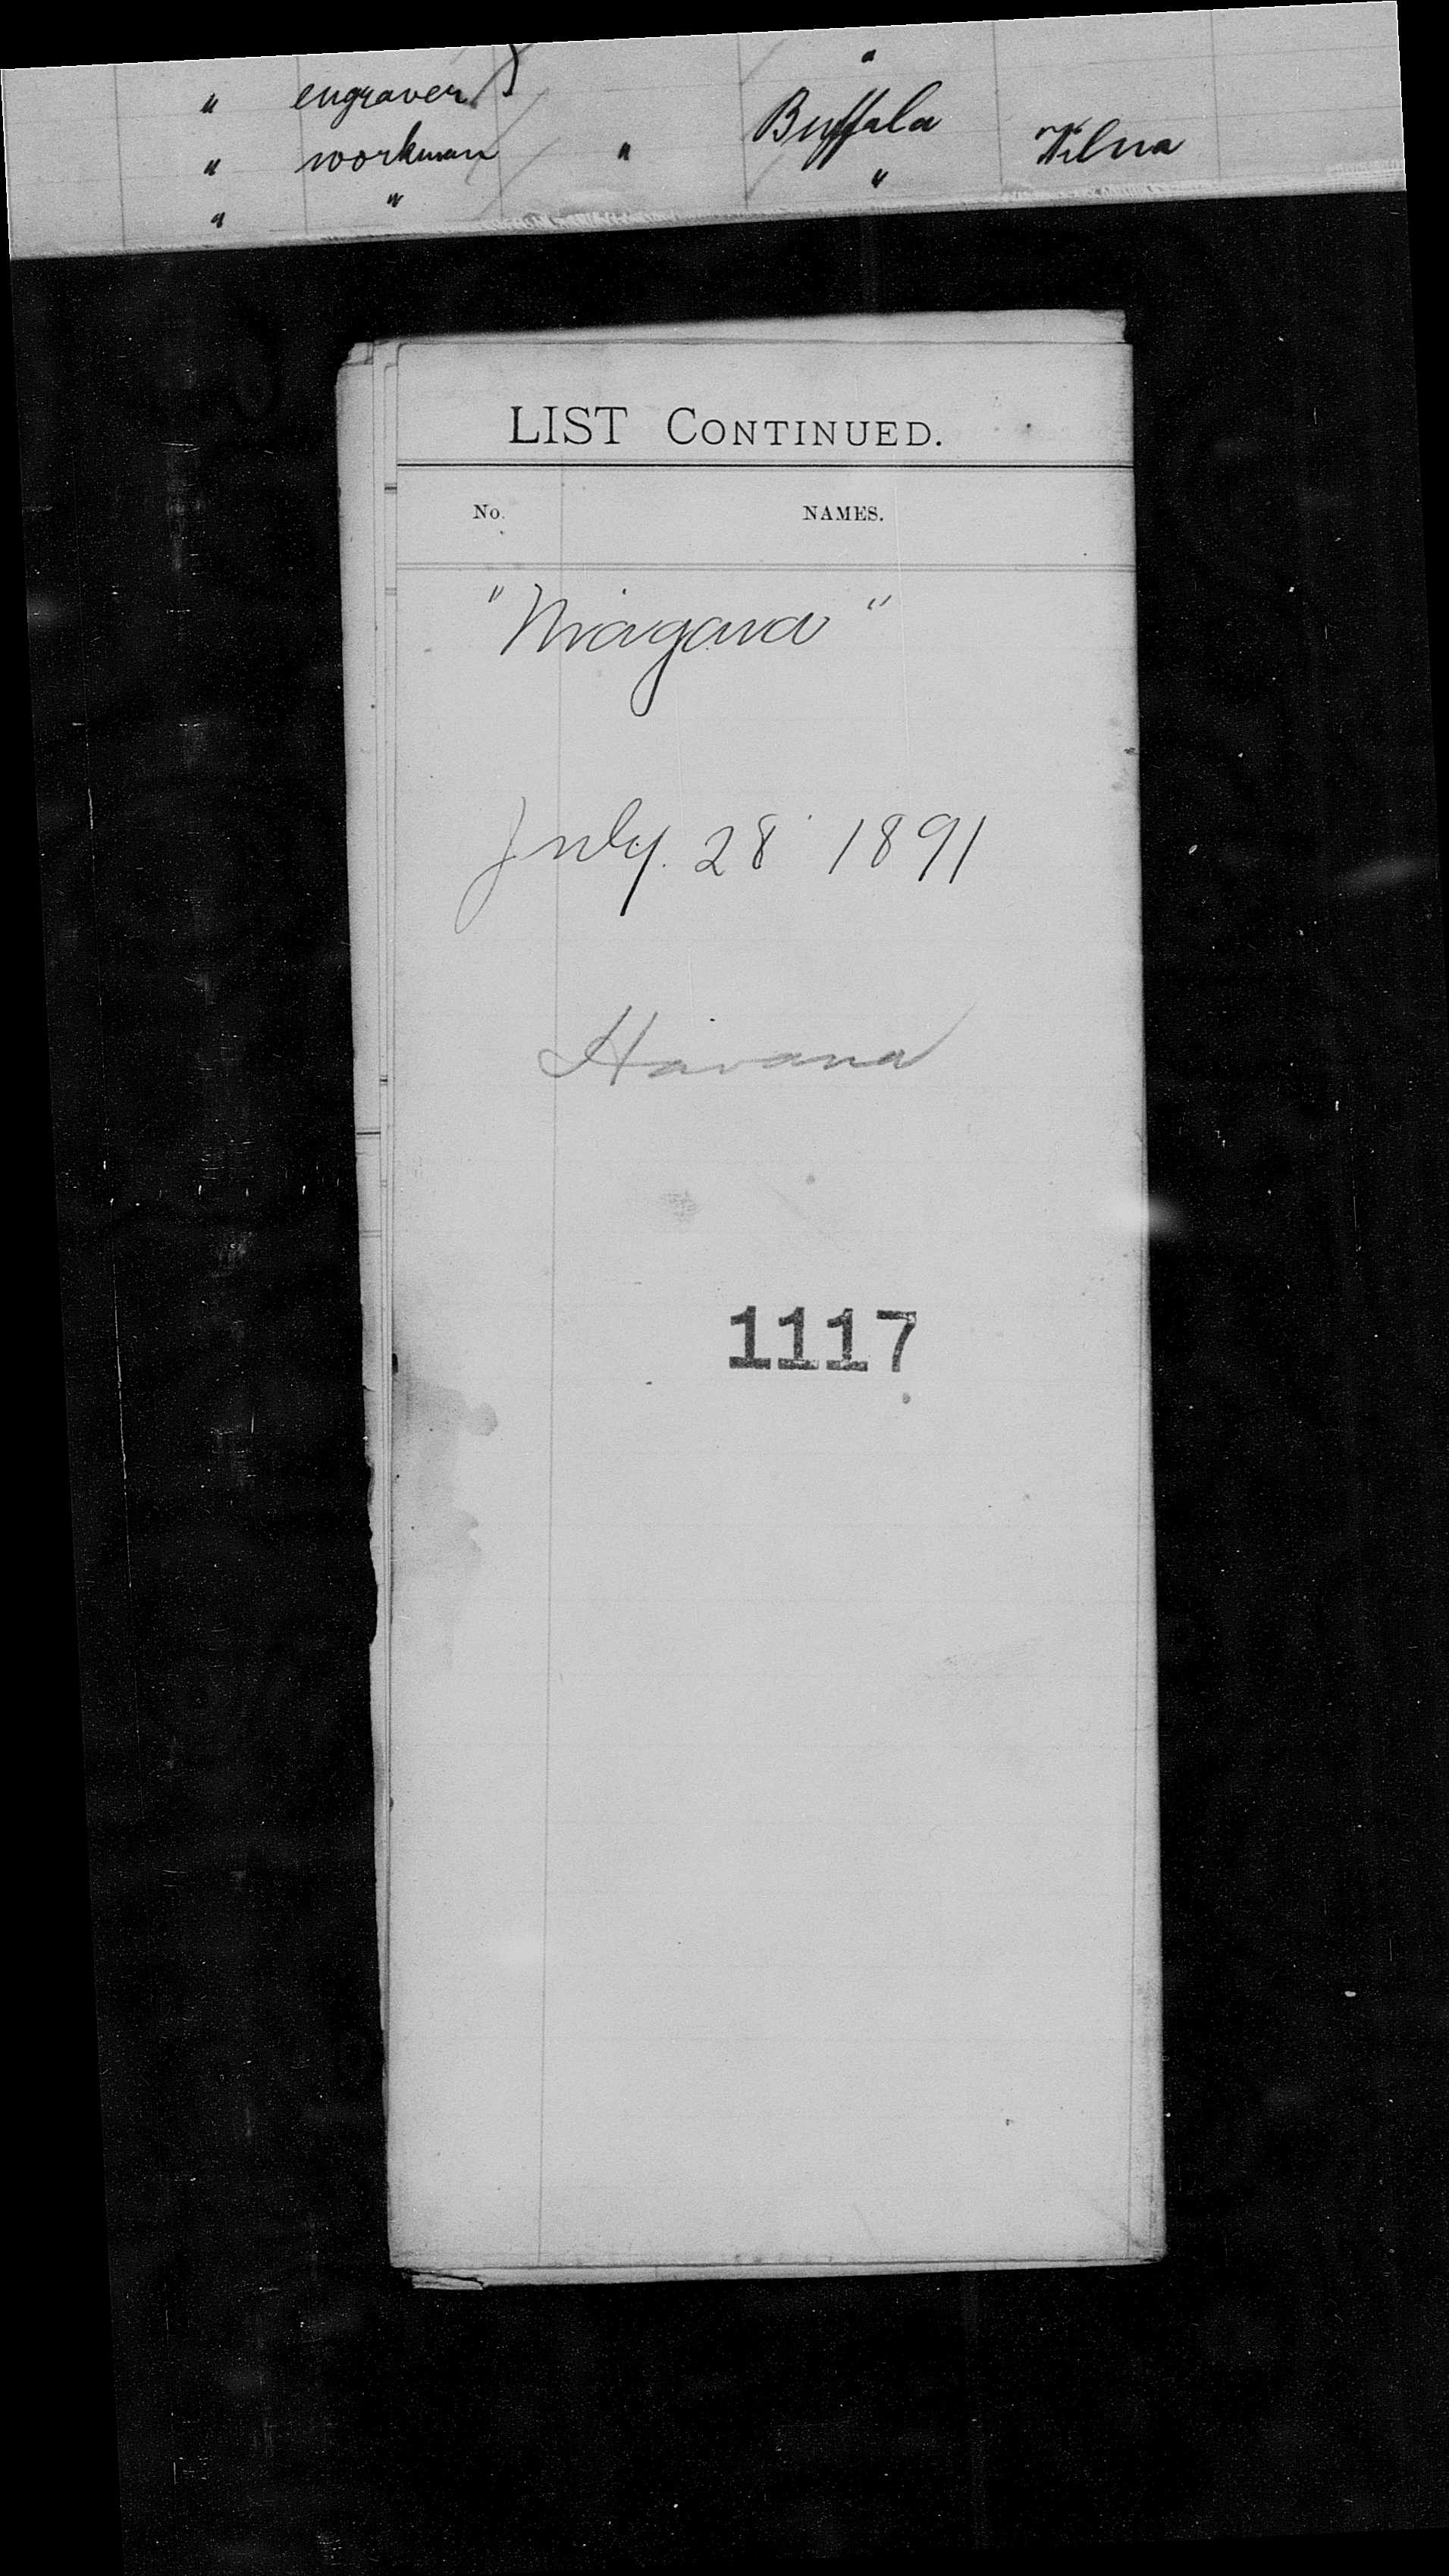 "
" engraver
Buffala
" workman " Wilna
" " "
LIST CONTINUED.
No. NAMES.
"Niagara"
July. 28 1891
Havana
1117